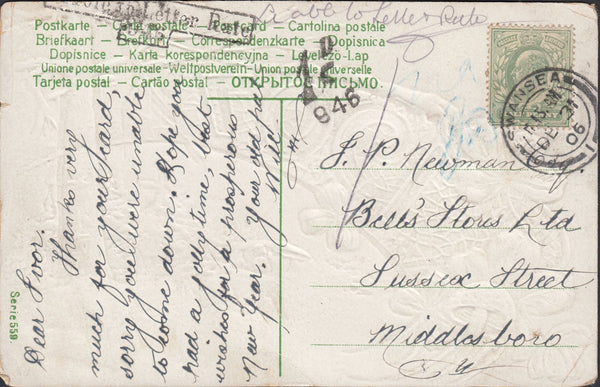 Liable to Letter Rate
Letter Rate
Postkarte - Carte postale - Cartolina postale
Briefkaart - Brefkort - Correspondenzkarte - Dopisnica
Dopisnice - Karta korespondencyjna - Levelező-Lap
Unione postale universale - Weltpostverein - Union postale universelle
Tarjeta postal - Cartão postal - ОТКРЫТОЕ ПИСЬМО.
946
SWANSEA
DE
06
Dear Ivor.
Thanks very
much for your card,
sorry you were unable
to come down. Hope you
had a jolly time, best
wishes for a prosperous
New Year. Your old pal
Will.
J. P. Newman Esq.
Bell's Stores Ltd
Sussex Street
Middlesboro
Serie 559